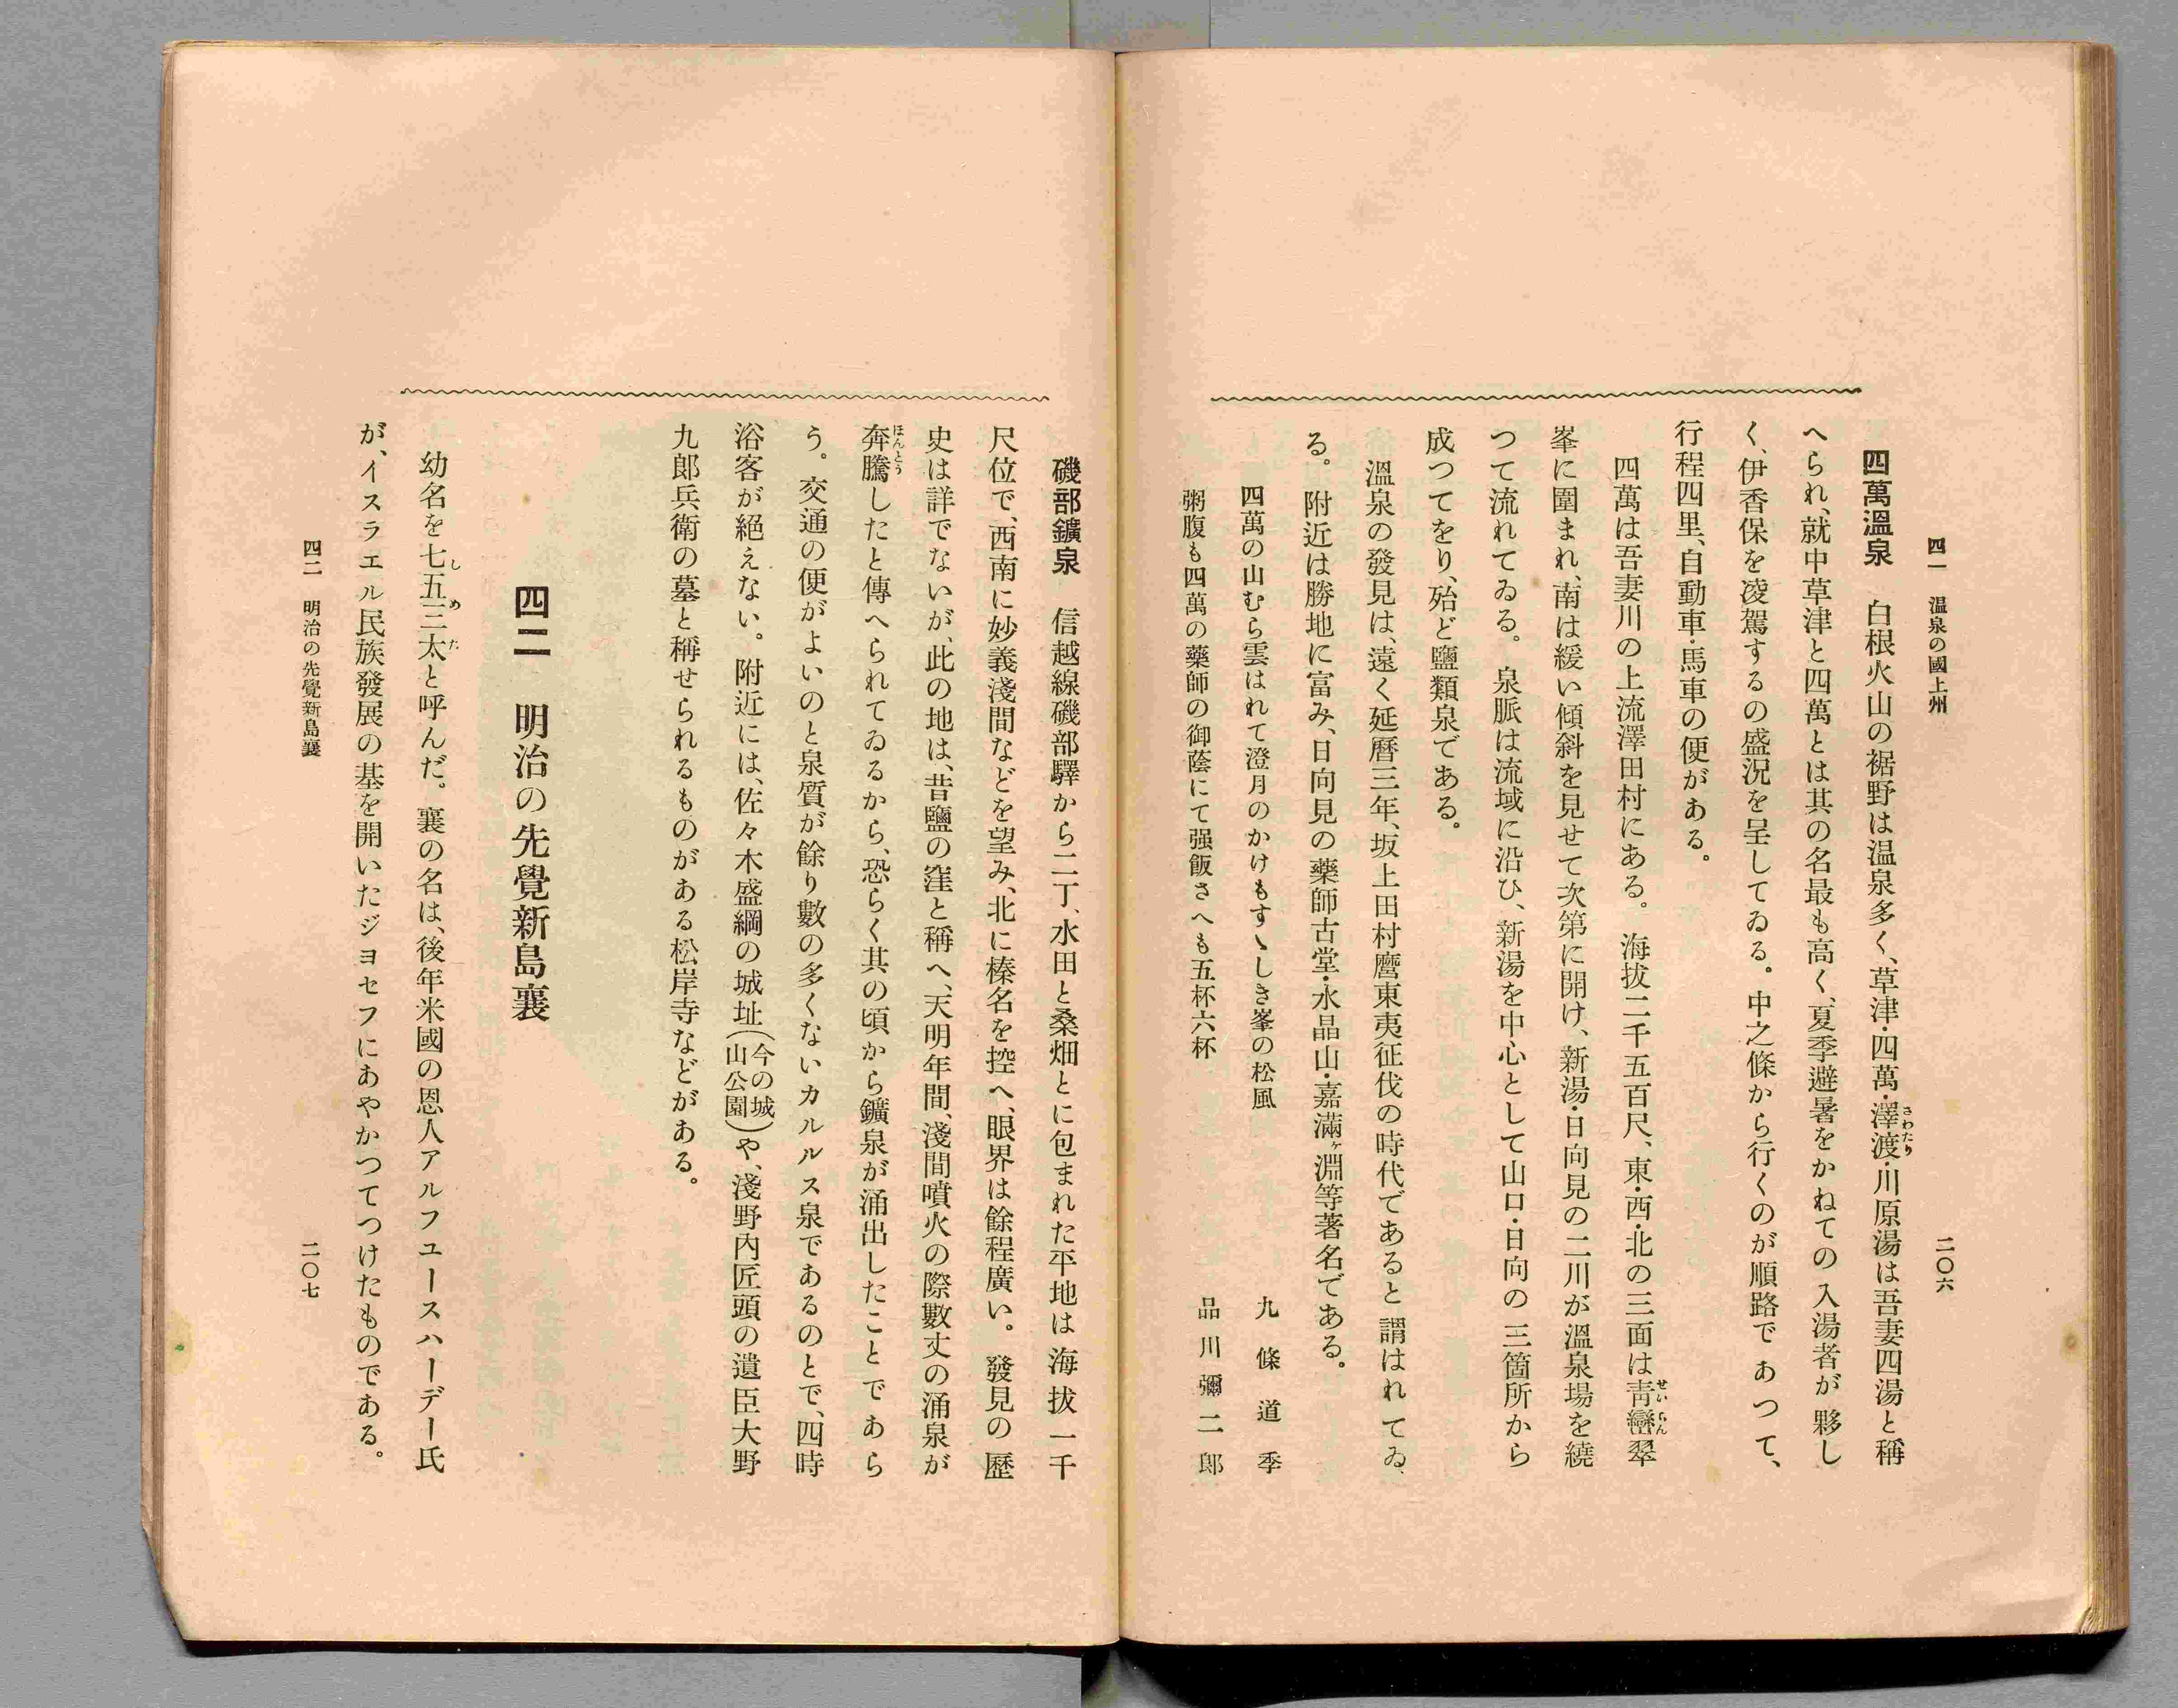 四一　温泉の國上州
二〇六
四萬溫泉　白根火山の裾野は温泉多く、草津・四萬・澤渡・川原湯は吾妻四湯と稱
へられ、就中草津と四萬とは其の名最も高く、夏季避暑をかねての入湯者が夥し
く、伊香保を凌駕するの盛況を呈してゐる。中之條から行くのが順路であつて、
行程四里、自動車・馬車の便がある。
四萬は吾妻川の上流澤田村にある。海拔二千五百尺、東・西・北の三面は靑巒翠
峯に圍まれ、南は緩い傾斜を見せて次第に開け、新湯・日向見の二川が溫泉場を繞
つて流れてゐる。泉脈は流域に沿ひ、新湯を中心として山口・日向の三箇所から
成つてをり、殆ど鹽類泉である。
溫泉の發見は、遠く延曆三年、坂上田村麿東夷征伐の時代であると謂はれてゐ
る。附近は勝地に富み、日向見の藥師古堂・水晶山・嘉滿ヶ淵等著名である。
四萬の山むら雲はれて澄月のかけもすゝしき峯の松風　九條道季
粥腹も四萬の藥師の御蔭にて强飯さへも五杯六杯　品川彌二郎
磯部鑛泉　信越線磯部驛から二丁、水田と桑畑とに包まれた平地は海拔一千
尺位で、西南に妙義淺間などを望み、北に榛名を控へ、眼界は餘程廣い。發見の歷
史は詳でないが、此の地は、昔鹽の窪と稱へ、天明年間、淺間噴火の際數丈の涌泉が
奔騰したと傳へられてゐるから、恐らく其の頃から鑛泉が涌出したことであら
う。交通の便がよいのと泉質が餘り數の多くないカルルス泉であるのとで、四時
浴客が絕えない。附近には、佐々木盛綱の城址(今の城山公園)や、淺野內匠頭の遺臣大野
九郎兵衛の墓と稱せられるものがある松岸寺などがある。
四二　明治の先覺新島襄
幼名を七五三太と呼んだ。襄の名は、後年米國の恩人アルフユースハーデー氏
が、イスラエル民族發展の基を開いたジヨセフにあやかつてつけたものである。
四二　明治の先覺新島襄
二〇七